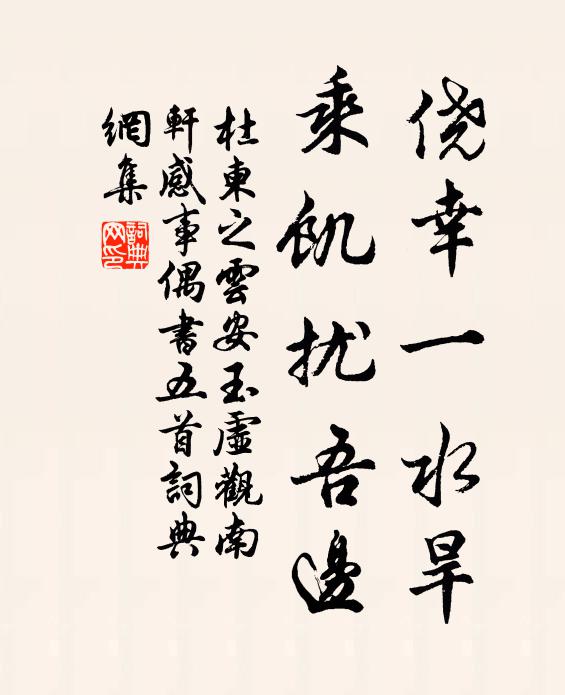 侥幸一水旱
乘飢扰吾邊
杜東之雲安玉虛觀南
軒感事偶書五首詞典
網集
詞典
网印